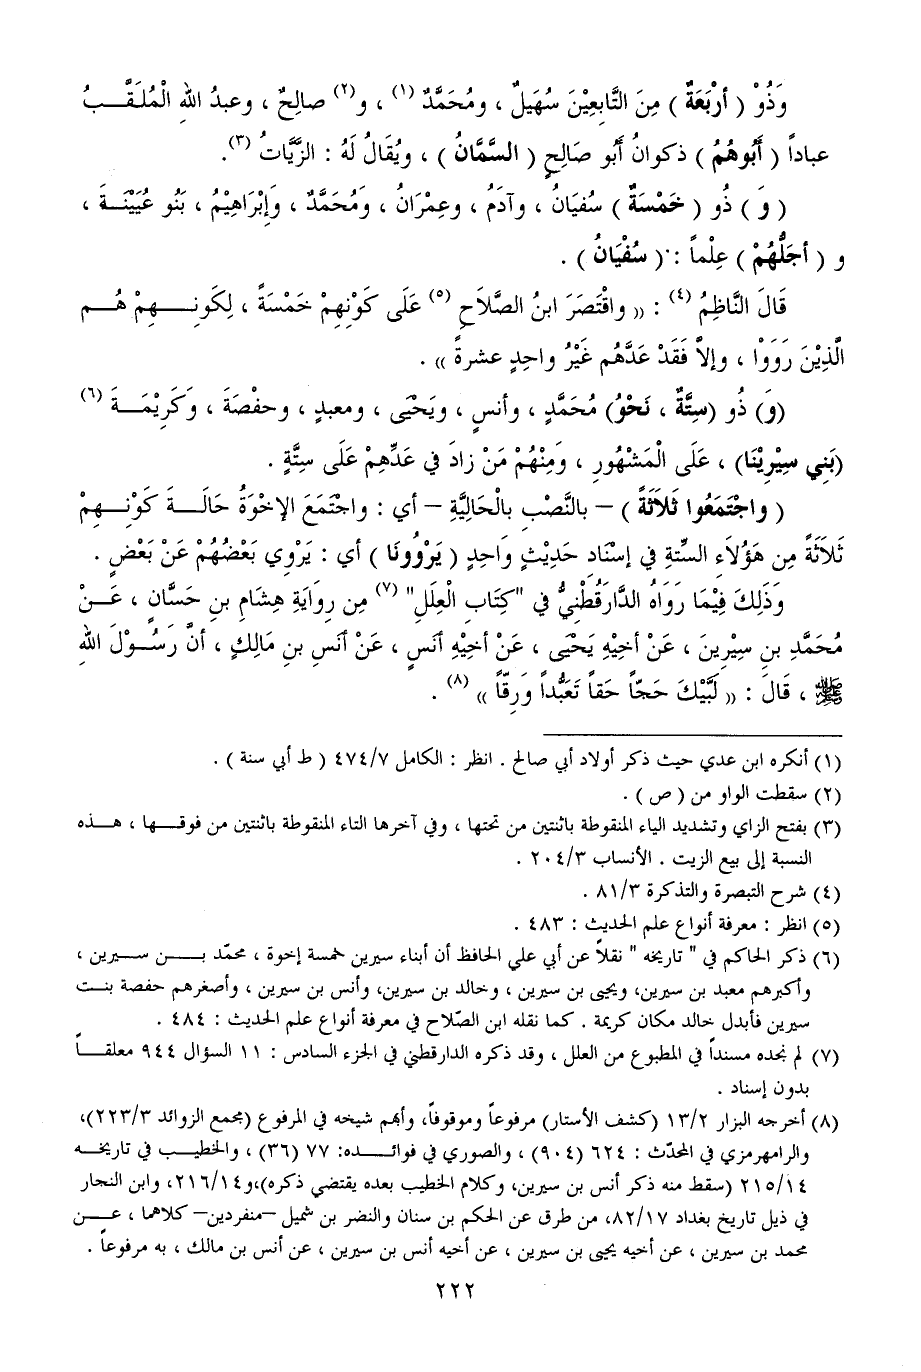 وَذُوْ ( أرْبَعَةٌ ) مِنَ التَّابِعِيْنَ سُهَيلٌ ، ومُحَمَّدٌ (١) ، و(٢) صالِحٌ ، وعبدُ اللهِ الْمُلَقَّبُ
عباداً ( أَبُوهُمُ ) ذكوانُ أَبُو صَالِحٍ ( السَّمَّانُ ) ، ويُقَالُ لَهُ : الزَّيَّاتُ (٣).
( وَ ) ذُو ( خَمْسَةٌ ) سُفيَانُ ، وآدَمُ ، وعِمْرَانُ ، وَمُحَمَّدٌ ، وَإِبْرَاهِيْمُ ، بَنُو عُيَيْنَةَ ،
و ( أجَلُّهُمْ ) عِلْماً : ( سُفْيَانُ ) .
قَالَ النَّاظِمُ (٤) : (( واقْتَصَرَ ابنُ الصَّلاَحِ (٥) عَلَى كَوْنِهِمْ خَمْسَةً ، لِكَونِهِمْ هُم
الَّذِيْنَ رَوَوْا ، وإلاَّ فَقَدْ عَدَّهُم غَيْرُ واحِدٍ عشرةً )) .
(وَ) ذُو (سِتَّةٌ ، نَحْوُ) مُحَمَّدٍ ، وأنسٍ ، ويَحْيَى ، ومعبدٍ ، وحفْصَةَ ، وَكَرِيْمَةَ (٦)
(بَنِي سِيْرِيْنَا) ، عَلَى الْمَشْهُورِ ، وَمِنْهُمْ مَنْ زادَ في عَدِّهِمْ عَلَى سِتَّةٍ .
( واجْتَمَعُوا ثَلاَثَةً ) – بالنَّصْبِ بالْحَالِيَّةِ – أي : واجْتَمَعَ الإخْوَةُ حَالَةَ كَوْنِهِمْ
ثَلاَثَةً مِن هَؤُلاَءِ السِّتَّةِ في إسْنَادِ حَدِيْثٍ وَاحِدٍ ( يَرْوُونَا ) أي : يَرْوِي بَعْضُهُمْ عَنْ بَعْضٍ .
وَذَلِكَ فِيْمَا رَوَاهُ الدَّارَقُطْنِيُّ في "كِتَابِ الْعِلَلِ" (٧) مِن رِوَايَةِ هِشَامِ بنِ حَسَّانٍ ، عَنْ
مُحَمَّدِ بنِ سِيْرِينَ ، عَنْ أخيْهِ يَحْيَى ، عَنْ أخيْهِ أنَسٍ ، عَنْ أنَسِ بنِ مَالِكٍ ، أنَّ رَسُوْلَ اللهِ
ﷺ ، قَالَ : (( لَبَّيْكَ حَجًّا حَقاً تَعَبُّداً وَرِقّاً )) (٨) .
(١) أنكره ابن عدي حيث ذكر أولاد أبي صالح . انظر : الكامل ٤٧٤/٧ ( ط أبي سنة ) .
(٢) سقطت الواو من ( ص ) .
(٣) بفتح الزاي وتشديد الياء المنقوطة باثنتين من تحتها ، وفي آخرها التاء المنقوطة باثنتين من فوقها ، هذه
النسبة إلى بيع الزيت . الأنساب ٢٠٤/٣ .
(٤) شرح التبصرة والتذكرة ٨١/٣ .
(٥) انظر : معرفة أنواع علم الحديث : ٤٨٣ .
(٦) ذكر الحاكم في " تاريخه " نقلاً عن أبي علي الحافظ أن أبناء سيرين خمسة إخوة ، محمّد بن سيرين ،
وأكبرهم معبد بن سيرين، ويحيى بن سيرين ، وخالد بن سيرين، وأنس بن سيرين ، وأصغرهم حفصة بنت
سيرين فأبدل خالد مكان كريمة . كما نقله ابن الصّلاح في معرفة أنواع علم الحديث : ٤٨٤ .
(٧) لم نجده مسنداً في المطبوع من العلل ، وقد ذكره الدارقطني في الجزء السادس : ١١ السؤال ٩٤٤ معلقاً
بدون إسناد .
(٨) أخرجه البزار ١٣/٢ (كشف الأستار) مرفوعاً وموقوفاً، وأبهم شيخه في المرفوع (مجمع الزوائد ٢٢٣/٣)،
والرامهرمزي في المحدّث : ٦٢٤ (٩٠٤) ، والصوري في فوائده: ٧٧ (٣٦) ، والخطيب في تاريخه
٢١٥/١٤ (سقط منه ذكر أنس بن سيرين، وكلام الخطيب بعده يقتضي ذكره)،و٢١٦/١٤، وابن النجار
في ذيل تاريخ بغداد ٨٢/١٧، من طرق عن الحكم بن سنان والنضر بن شميل –منفردين– كلاهما ، عن
محمد بن سيرين ، عن أخيه يحيى بن سيرين ، عن أخيه أنس بن سيرين ، عن أنس بن مالك ، به مرفوعاً .
٢٢٢